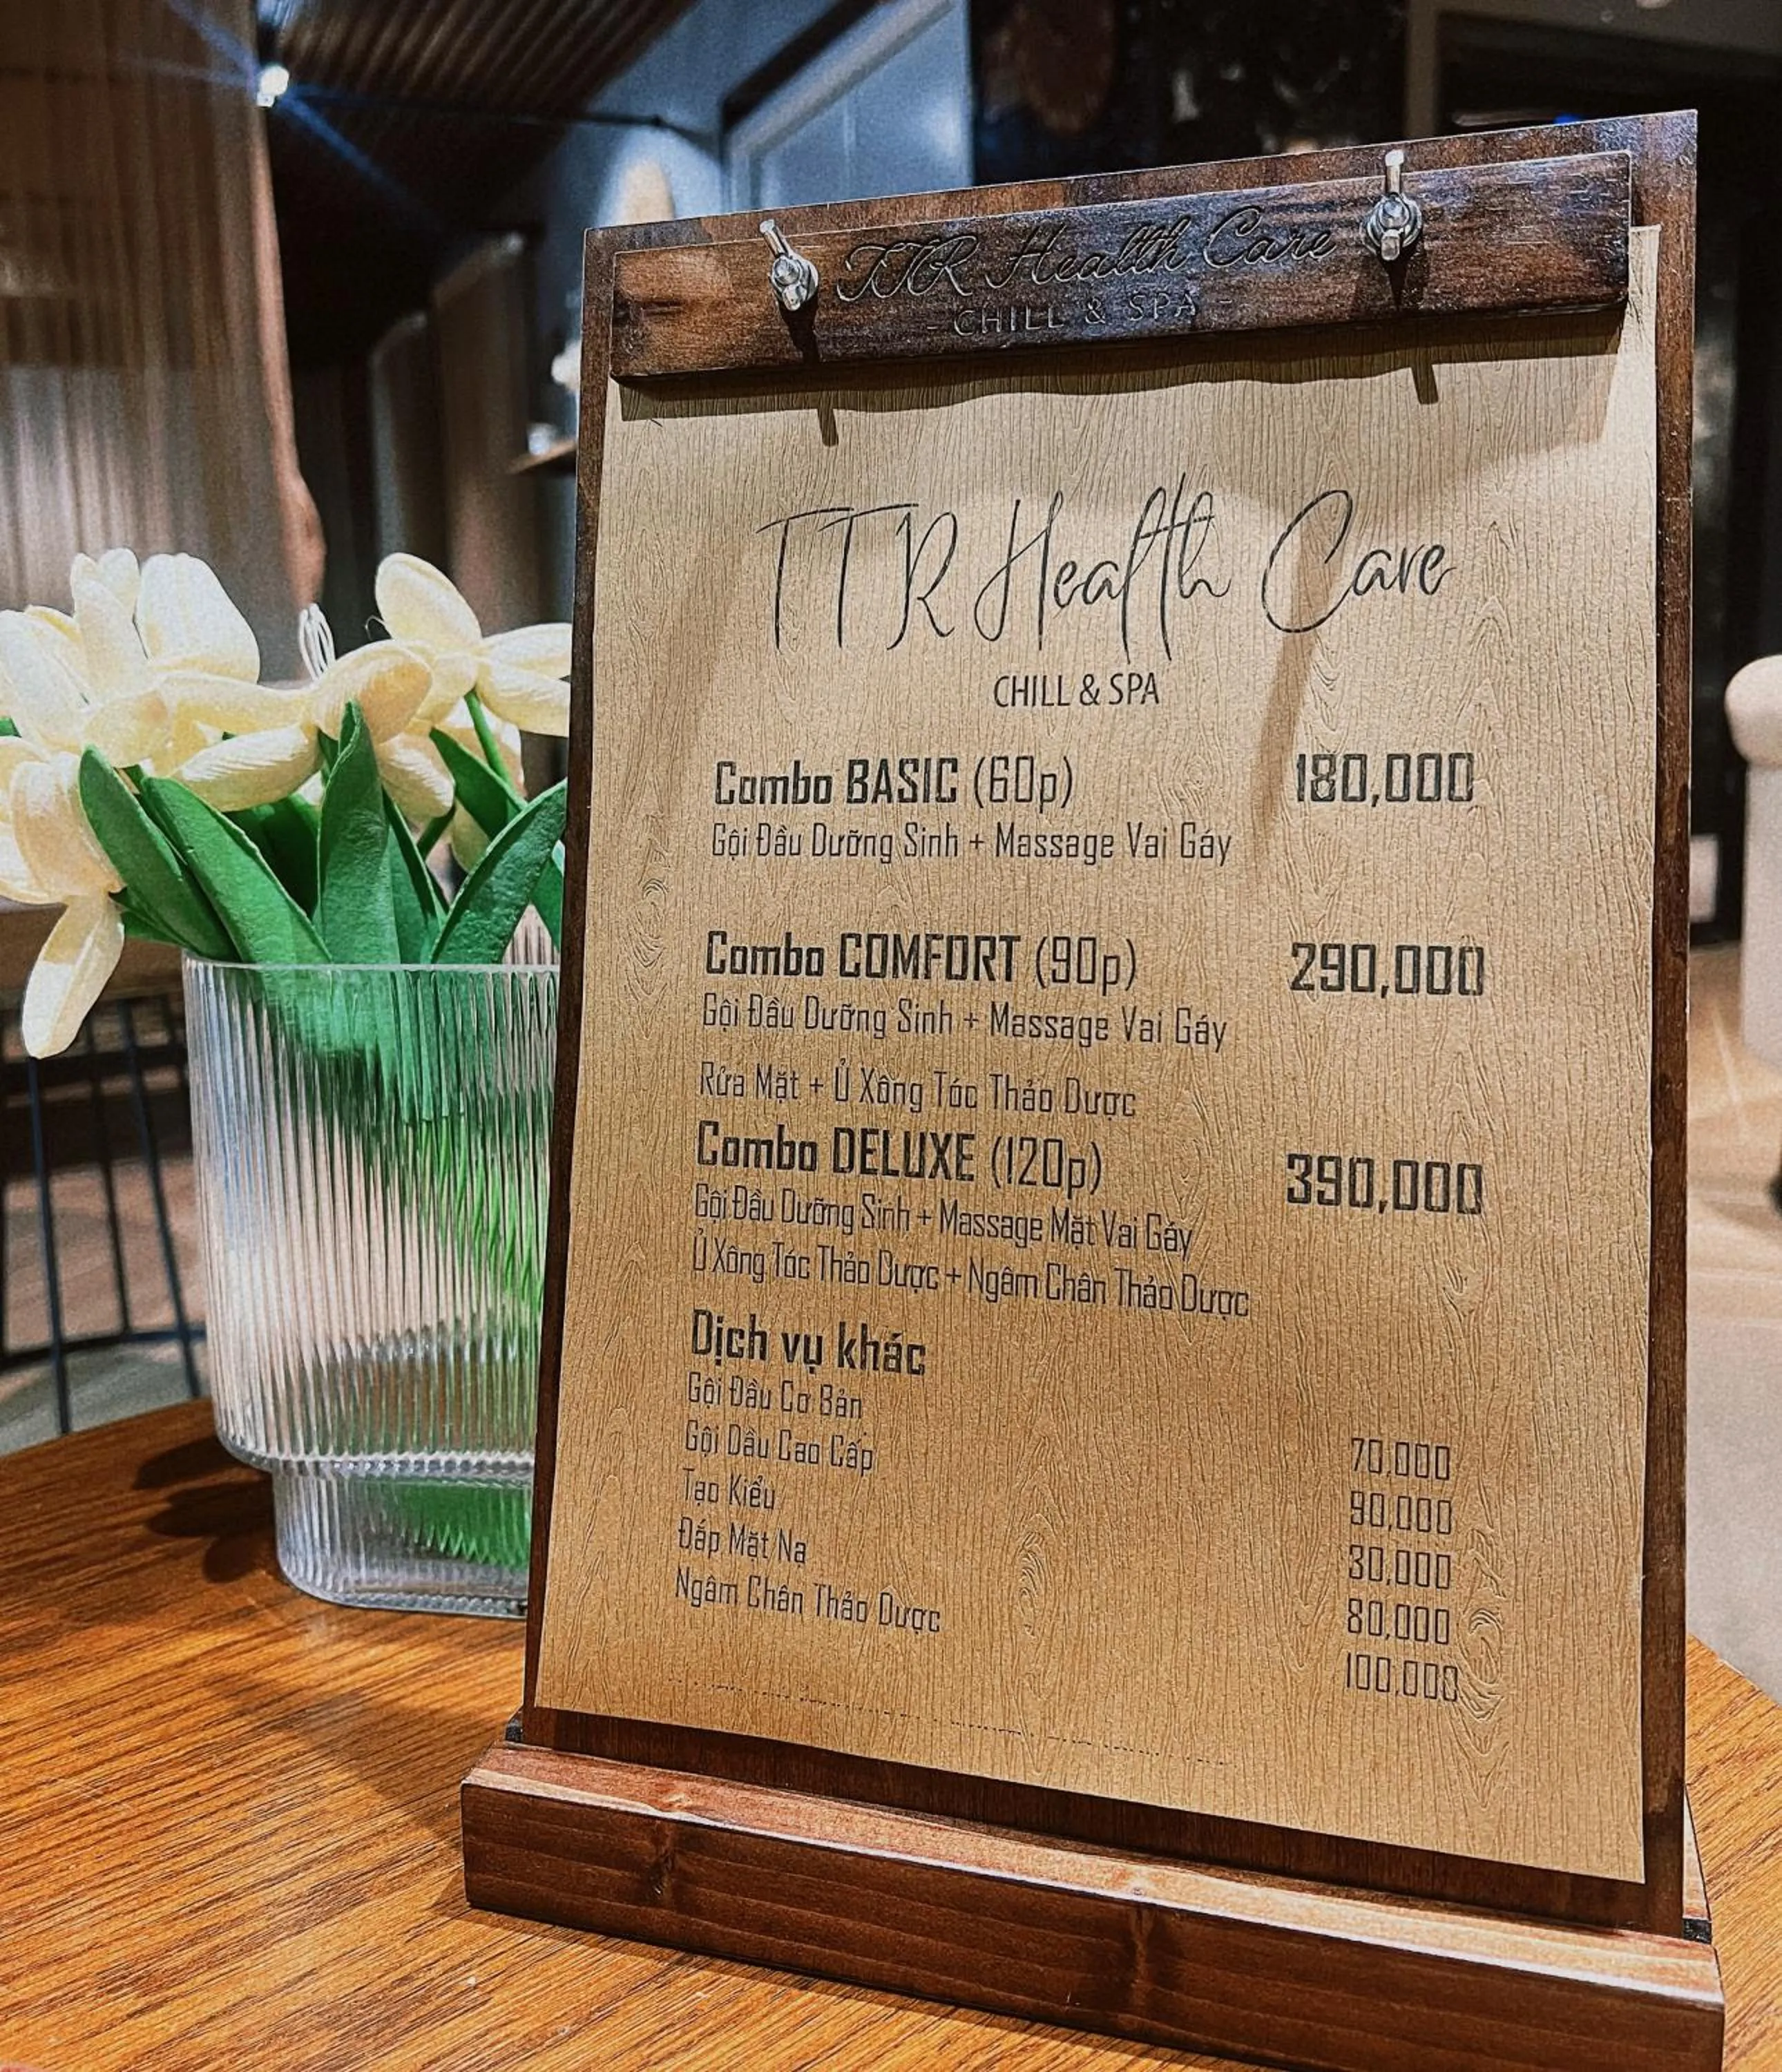 TTR Health Care
- CHILL & SPA -
TTR Health Care
CHILL & SPA
Combo BASIC (60p) 180,000
Gội Đầu Dưỡng Sinh + Massage Vai Gáy
Combo COMFORT (90p) 290,000
Gội Đầu Dưỡng Sinh + Massage Vai Gáy
Rửa Mặt + Ủ Xông Tóc Thảo Dược
Combo DELUXE (120p) 390,000
Gội Đầu Dưỡng Sinh + Massage Mặt Vai Gáy
Ủ Xông Tóc Thảo Dược + Ngâm Chân Thảo Dược
Dịch vụ khác
Gội Đầu Cơ Bản 70,000
Gội Dầu Cao Cấp 90,000
Tạo Kiểu 30,000
Đắp Mặt Nạ 80,000
Ngâm Chân Thảo Dược 100,000